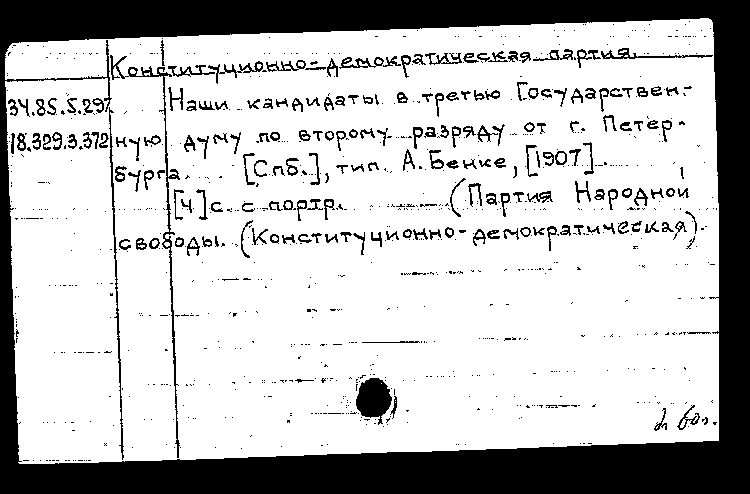 Конституционно-демократическая партия.
34.85.5.297 Наши кандидаты в третью Государствен-
18.329.3.372 ную думу по второму разряду от г. Петер-
бурга. [Спб.], тип. А. Бенке, [1907].
[4]с. с портр. (Партия Народной
свободы. (Конституционно-демократическая).